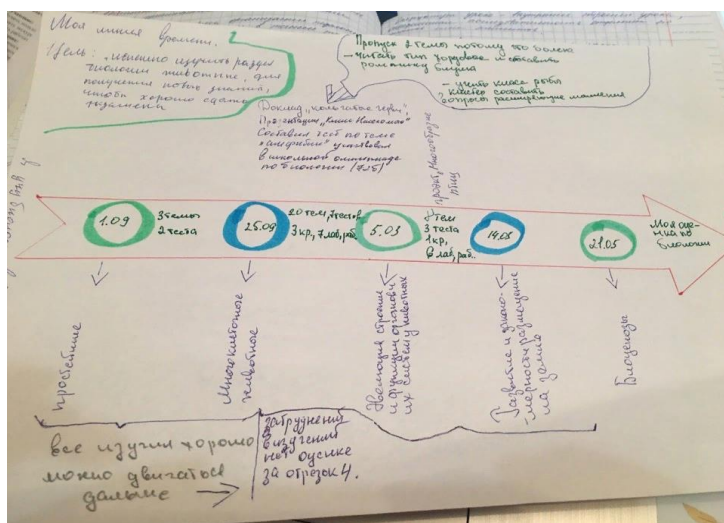 Моя линия времени.
Цель: именно изучить раздел
биологии животные, для
получения новых знаний,
чтобы хорошо сдать
экзамены
Пропуск 2 темы потому что болею
– читать тип хордовые и составить
ромашку блума
– учить класс рыбы
кластер составить
вопросы расширяющие мышление
Доклад "кольчатые черви",
Презентация "Класс Насекомые"
Составил тест по теме
"амфибии" участвовал
в школьной олимпиаде
по биологии (7,5)
проект "Многообразие
птиц
1.09
3 темы
2 теста
25.09
20 тем, 7 тестов
3 кр, 7 лаб, раб.
5.03
8 тем
3 теста
1 кр,
лаб, раб..
14.05
21.05
Моя оце-
нка по
биологии
простейшие
Многоклеточные
животные
Эволюция строения
и функции органов и
их систем у животных
Развитие и законо-
мерности размещения
на земле
Биоценозы
все изучил хорошо
можно двигаться
дальше
затруднений
в изучении
нет оценке
за отрезок 4.